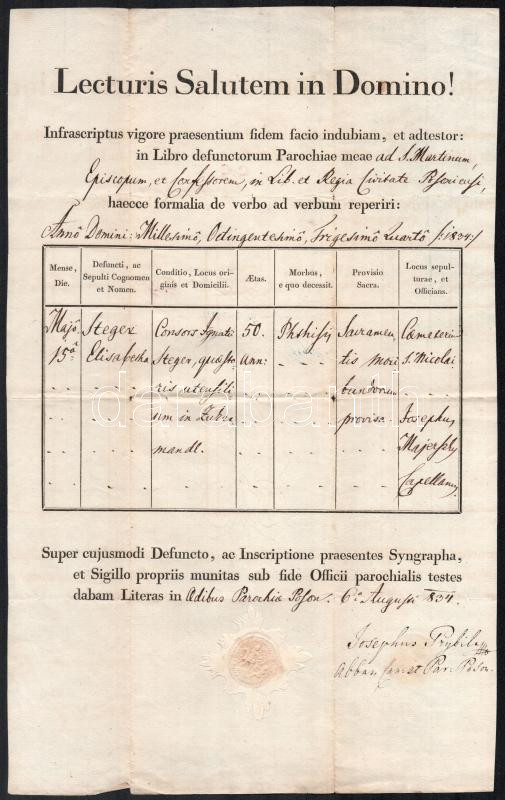 Lecturis Salutem in Domino!
Infrascriptus vigore praesentium fidem facio indubiam, et adtestor:
in Libro defunctorum Parochiae meae ad S. Martinum,
Episcopum, et Confessorem, in Lib. et Regia Civitate Posoniensi,
haecce formalia de verbo ad verbum reperiri:
Annô Domini: Millesimô, Octingentesimô, Trigesimô Quartô /:1834:/
Mense, Die.
Defuncti, ac Sepulti Cognomen et Nomen.
Conditio, Locus originis et Domicilii.
Ætas.
Morbus, e quo decessit.
Provisio Sacra.
Locus sepulturae, et Officians.
Majô
15â
Steger
Elisabetha
Consors Ignatii
Steger,
ris utensili
um in
mandl.
50.
Ann:
Phthisis
Sacramen
tis mori
bundorum
provisa.
Cameterium
S. Nicolai
Josephus
Capellanus
Super cujusmodi Defuncto, ac Inscriptione praesentes Syngrapha,
et Sigillo propriis munitas sub fide Officii parochialis testes
dabam Literas in Adibus Parochiæ Poson. 6a Augusti 834.
Josephus
Abbas
databank